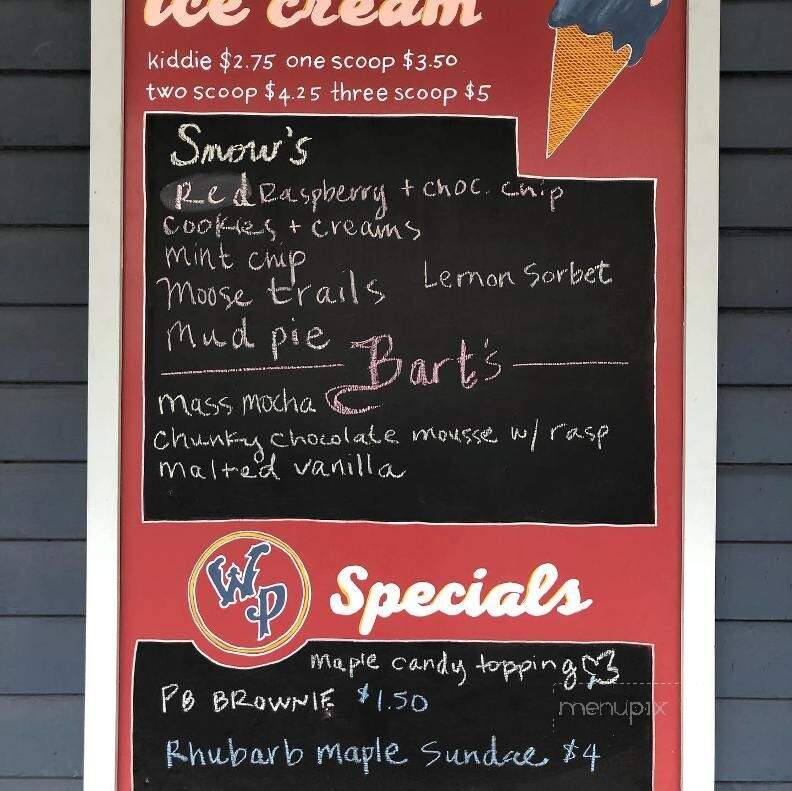 ice cream
kiddie $2.75 one scoop $3.50
two scoop $4.25 three scoop $5
Snow's
Red Raspberry + choc. chip
cookies + creams
mint chip
Lemon Sorbet
Moose trails
Mud pie
Bart's
mass mocha
chunky chocolate mousse w/ rasp
malted vanilla
WP
Specials
maple candy topping
PB BROWNIE $1.50
Rhubarb maple Sundae $4
menupix